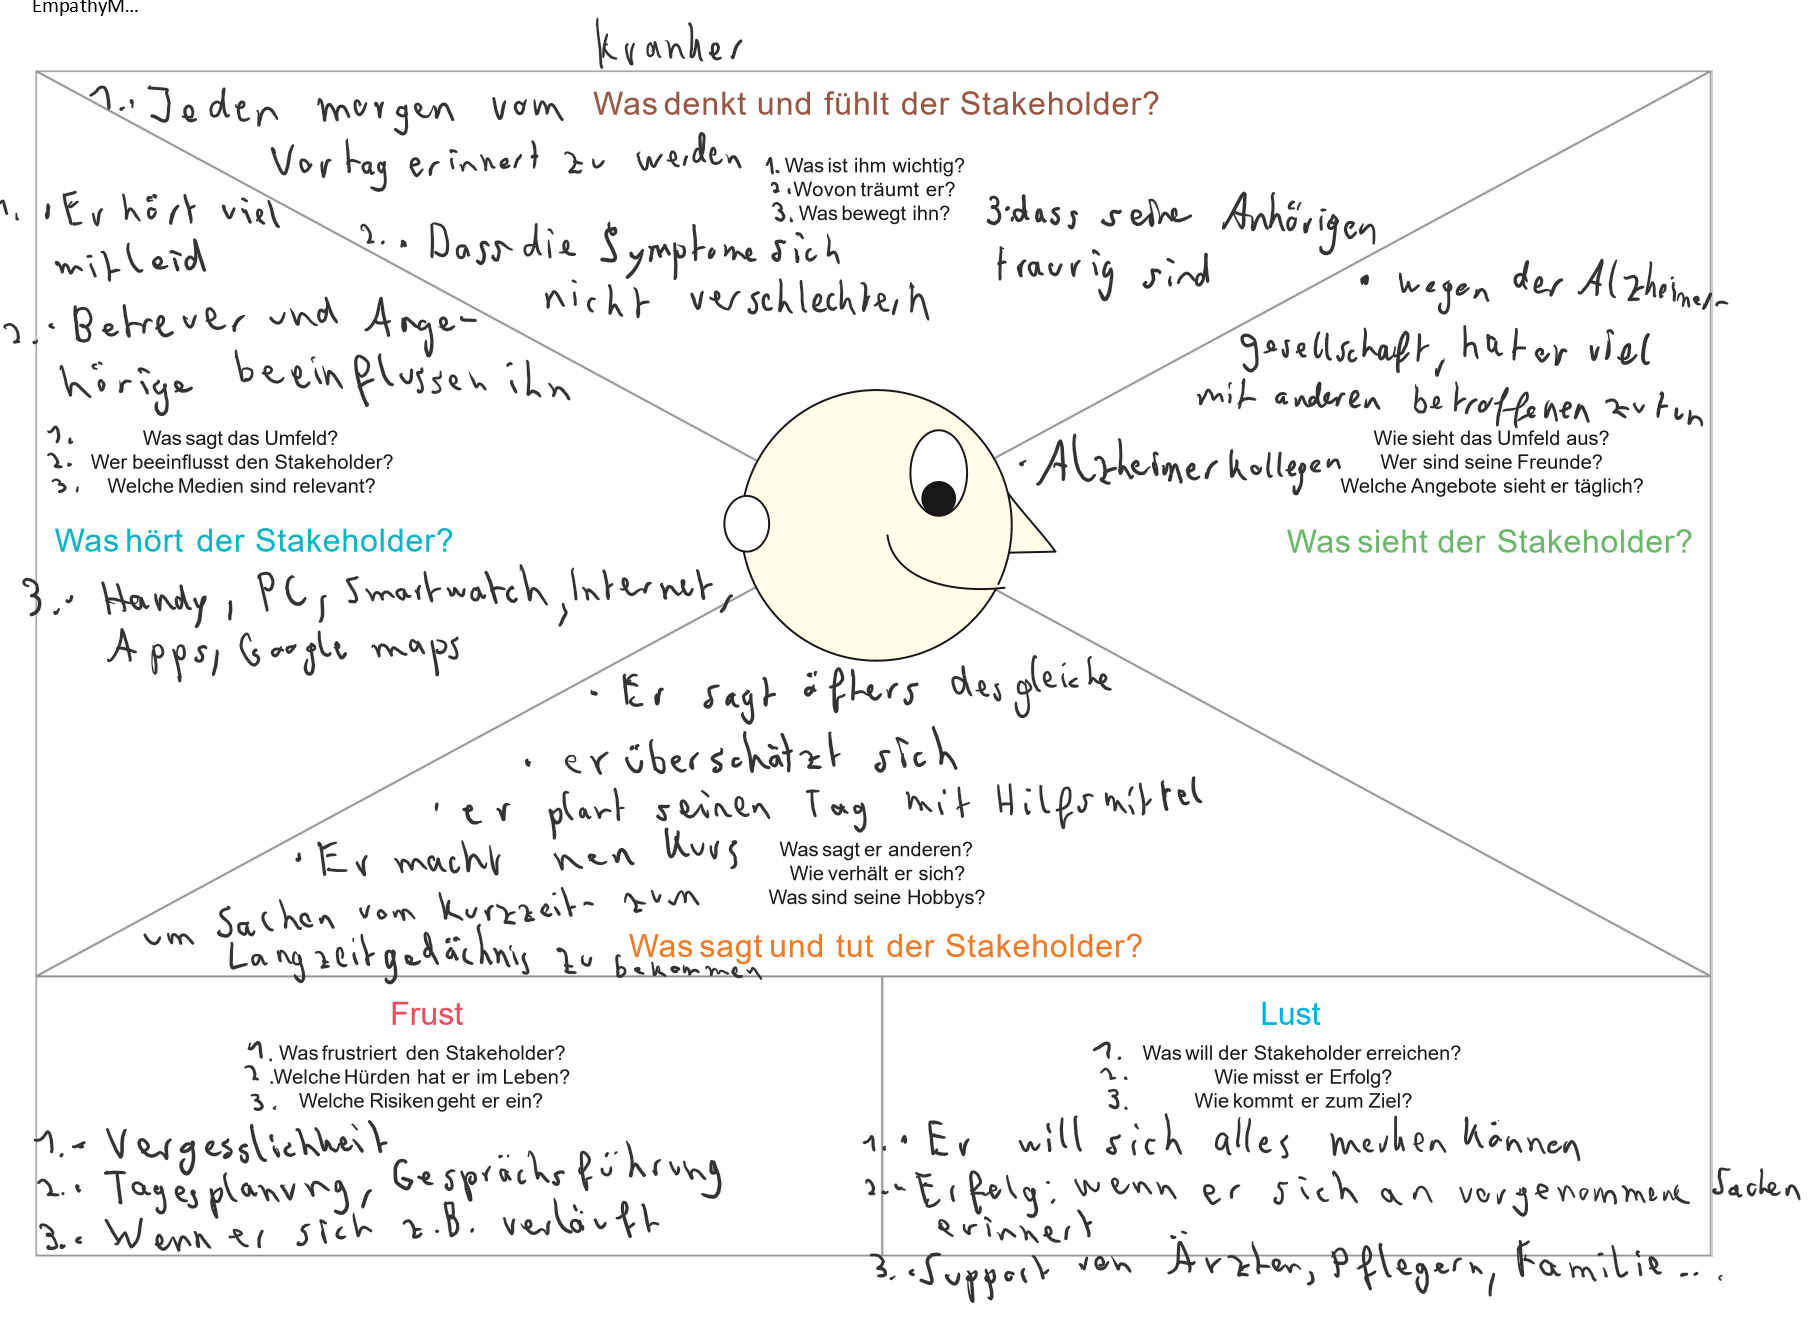 EmpathyM...
Kranker
1. · Jeden morgen vom
Vortag erinnert zu werden
Was denkt und fühlt der Stakeholder?
1. Was ist ihm wichtig?
2. Wovon träumt er?
3. Was bewegt ihn?
2. · Dass die Symptome sich
nicht verschlechtern
3. dass seine Anhörigen
traurig sind
1. · Er hört viel
mitleid
2. · Betreuer und Ange-
hörige beeinflussen ihn
1. Was sagt das Umfeld?
2. Wer beeinflusst den Stakeholder?
3. Welche Medien sind relevant?
Was hört der Stakeholder?
3. · Handy, PC, Smartwatch, Internet,
Apps, Google maps
· wegen der Alzheimer-
gesellschaft, hat er viel
mit anderen betroffenen zu tun
· Alzheimerkollegen
Wie sieht das Umfeld aus?
Wer sind seine Freunde?
Welche Angebote sieht er täglich?
Was sieht der Stakeholder?
· Er sagt öfters des gleiche
· er überschätzt sich
· er plant seinen Tag mit Hilfsmittel
· Er macht nen Kurs
um Sachen vom Kurzzeit- zum
Langzeitgedächnis zu bekommen
Was sagt er anderen?
Wie verhält er sich?
Was sind seine Hobbys?
Was sagt und tut der Stakeholder?
Frust
1. Was frustriert den Stakeholder?
2. Welche Hürden hat er im Leben?
3. Welche Risiken geht er ein?
1. · Vergesslichkeit
2. · Tagesplanung, Gesprächsführung
3. · Wenn er sich z.B. verläuft
Lust
1. Was will der Stakeholder erreichen?
2. Wie misst er Erfolg?
3. Wie kommt er zum Ziel?
1. · Er will sich alles merken können
2. · Erfolg: wenn er sich an vorgenommene Sachen
erinnert
3. · Support von Ärzten, Pflegern, Familie...